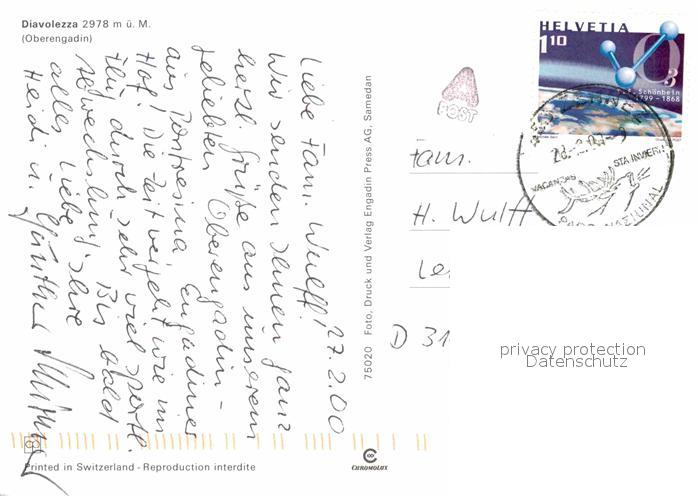 Diavolezza 2978 m ü. M.
(Oberengadin)
27.2.00
Liebe Fam. Wulff!
Wir senden Ihnen ganz
herzl. Grüße aus unserem
geliebten Oberengadin-
aus Pontresina Engadiner
Hof! Die Zeit vergeht wie im
Flug durch sehr viel sportl.
Abwechslung! Bis bald
alles Liebe Ihre
Heidi u. Günther
75020 Foto, Druck und Verlag Engadin Press AG, Samedan
HELVETIA
110
O3
Schönbein
1799 – 1868
POST
VACANZAS
STA INVIERN
PARC NAZIUNAL
Fam.
H. Wulff
Le
D 31
privacy protection
Datenschutz
Printed in Switzerland - Reproduction interdite
CHROMOLUX